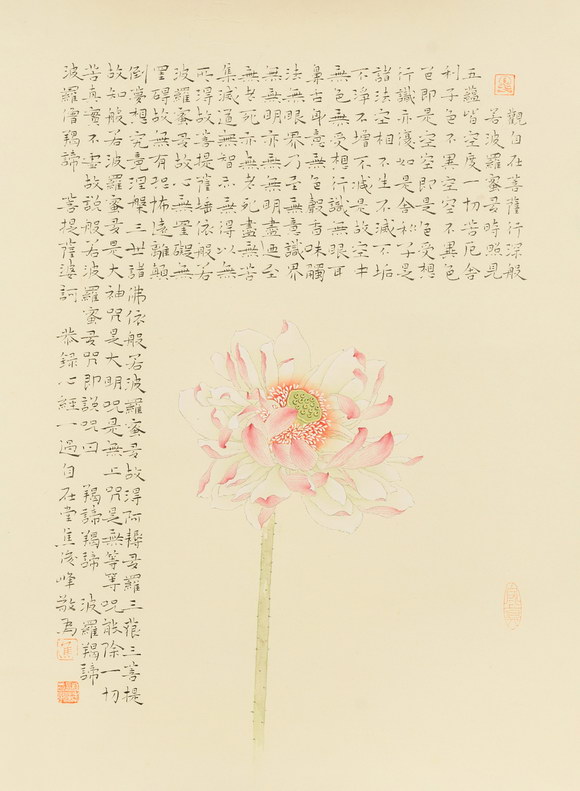 觀自在菩薩行深般
若波羅蜜多時照見
五蘊皆空度一切苦厄舍
利子色不異空空不異色
色即是空空即是色受想
行識亦復如是舍利子是
諸法空相不生不滅不垢
不淨不增不減是故空中
無色無受想行識無眼耳
鼻舌身意無色聲香味觸
法無眼界乃至無意識界
無無明亦無無明盡迺至
無老死亦無老死盡無苦
集滅道無智亦無得以無
所得故菩提薩埵依般若
波羅蜜多故心無罣礙無
罣礙故無有恐怖遠離顛
倒夢想究竟涅槃三世諸佛依般若波羅蜜多故得阿耨多羅三藐三菩提
故知般若波羅蜜多是大神呪是大明呪是無上呪是無等等呪能除一切
苦真實不虛故說般若波羅蜜多呪即說呪曰 羯諦羯諦 波羅羯諦
波羅僧羯諦 菩提薩婆訶 恭錄心經一過自在堂焦俊峰敬為